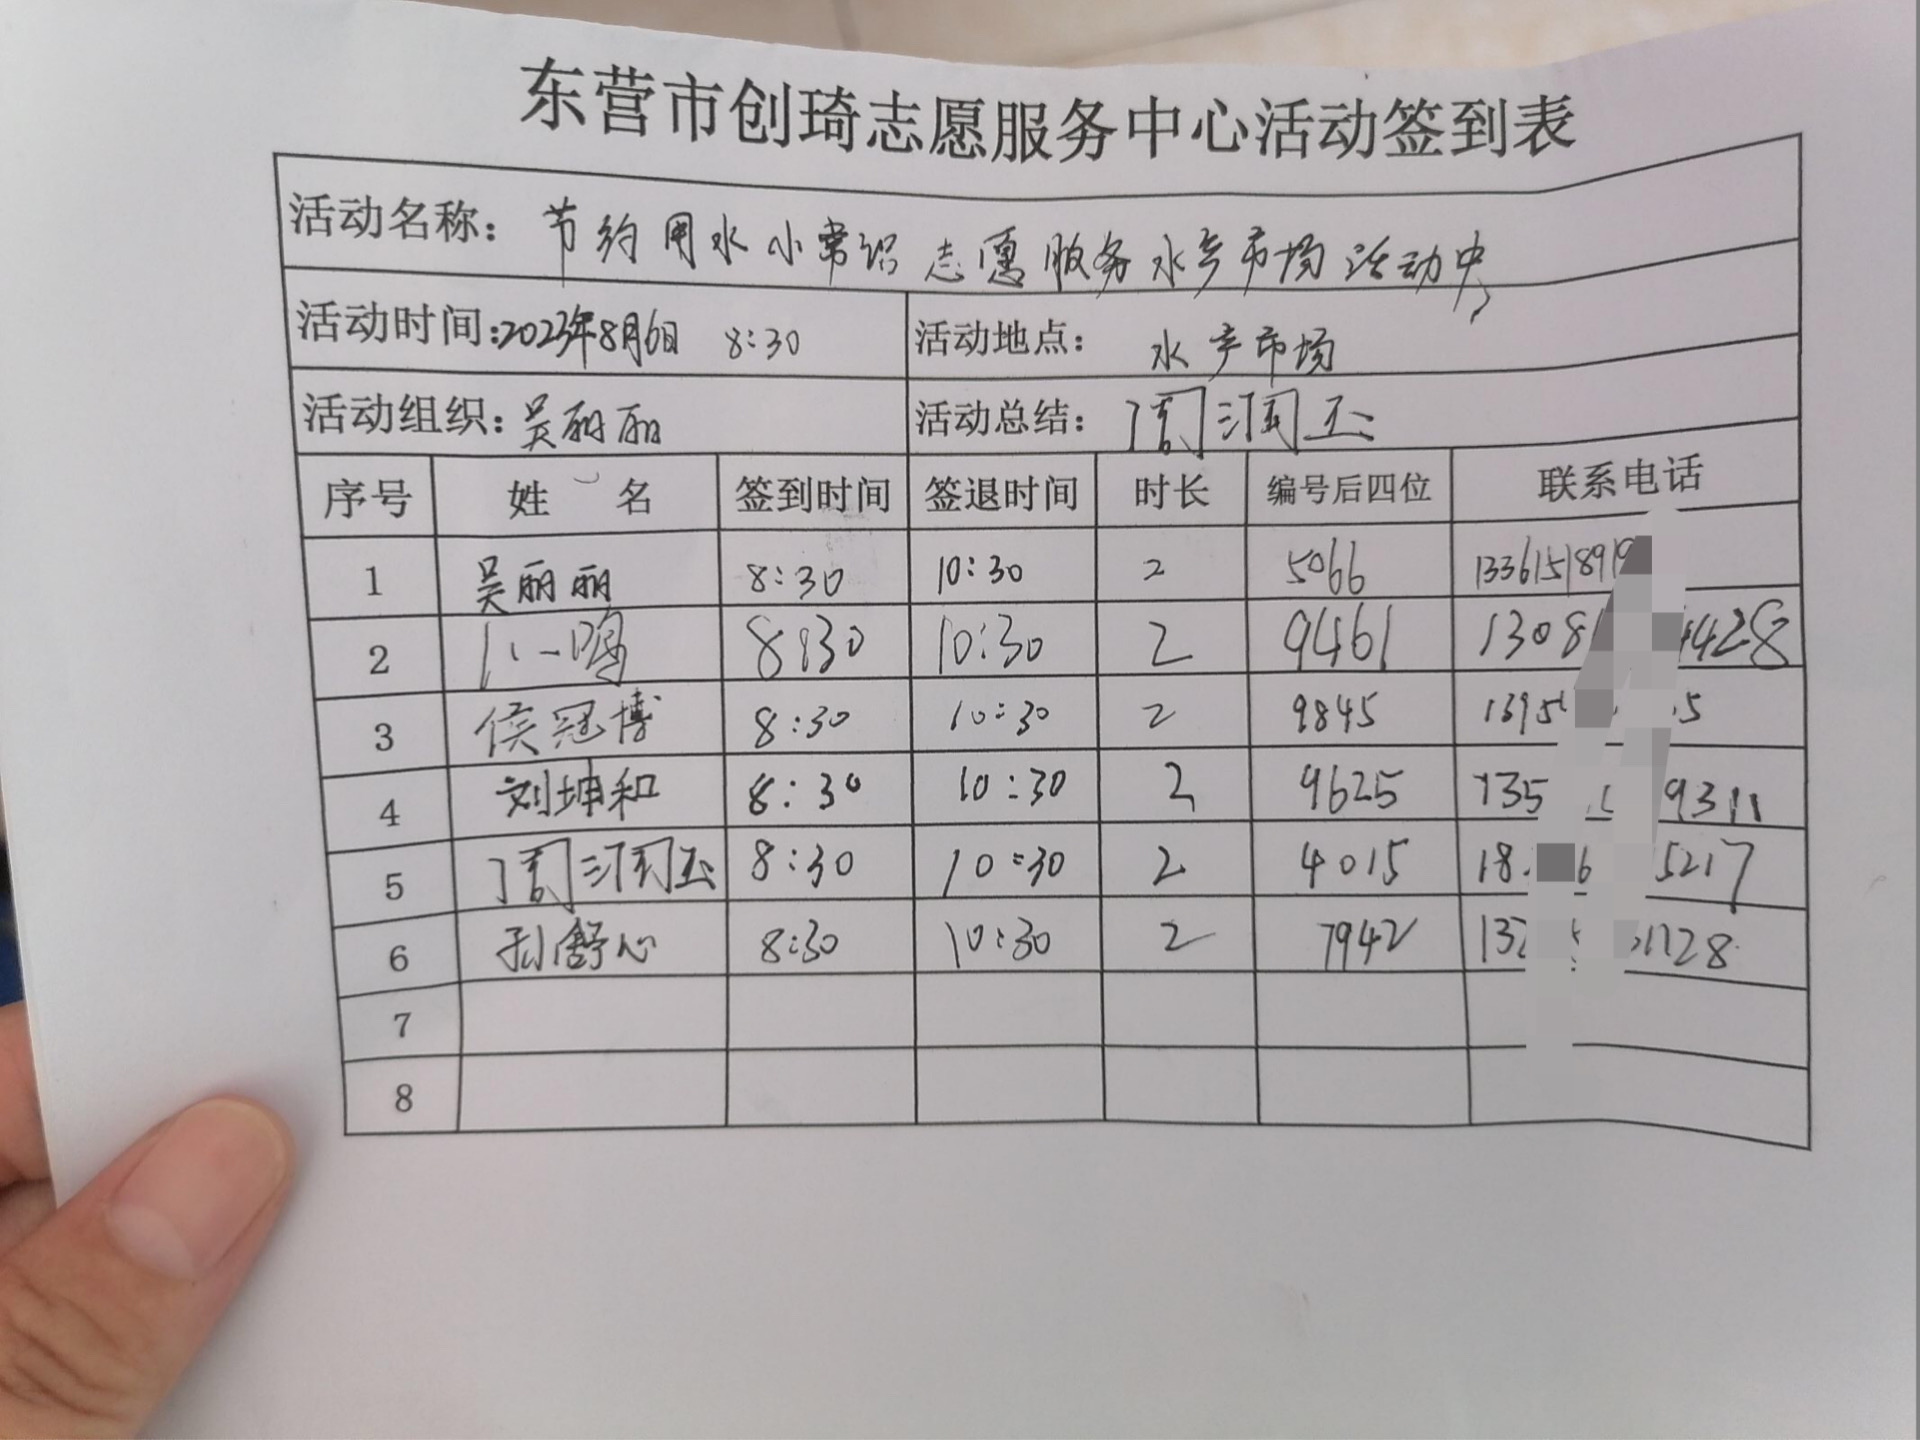 东营市创琦志愿服务中心活动签到表
活动名称: 节约用水小常识志愿服务水产市场活动中
活动时间:2023年8月6日 8:30 活动地点: 水产市场
活动组织: 吴丽丽 活动总结: 周润玉
序号 姓 名 签到时间 签退时间 时长 编号后四位 联系电话
1 吴丽丽 8:30 10:30 2 5066 133615189
2 一鸣 8:30 10:30 2 9461 1308 4428
3 侯冠博 8:30 10:30 2 9845 1395 5
4 刘坤和 8:30 10:30 2 9625 135 9311
5 周润玉 8:30 10:30 2 4015 18 6 5217
6 孙舒心 8:30 10:30 2 7942 132 1128
7
8